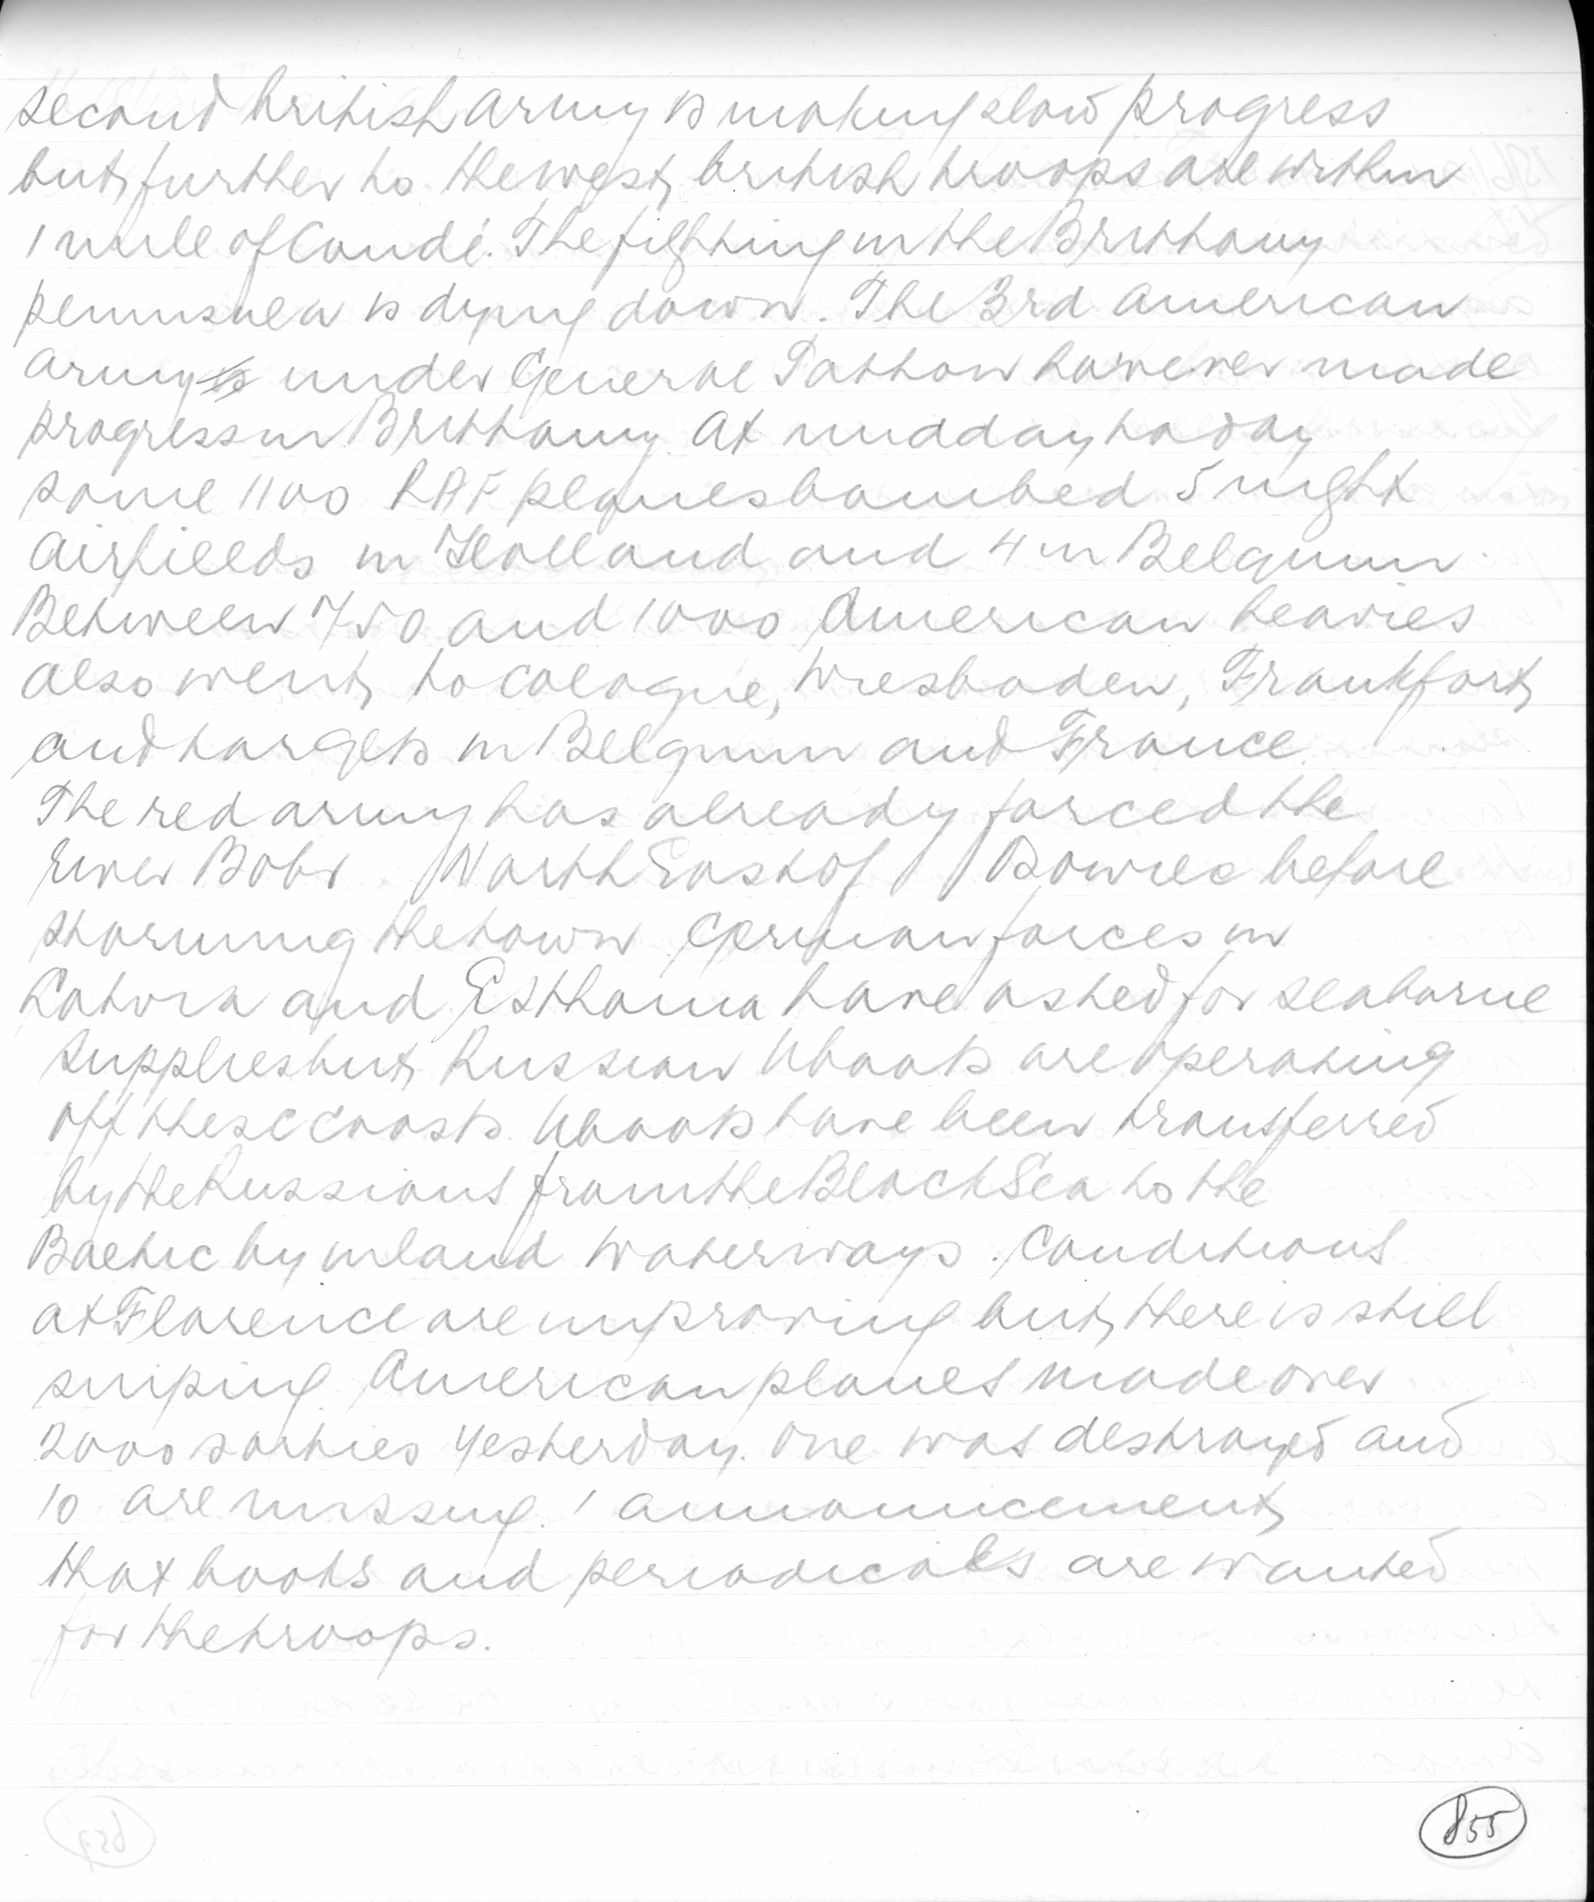 second british army is making slow progress
but further to the west british troops are within
1 mile of Condé. The fighting in the Brittany
peninsula is dying down. The 3rd American
army under General Patton however made
progress in Brittany. At midday today
some 1100 RAF planes bombed 5 night
airfields in Holland and 4 in Belgium.
Between 750 and 1000 American heavies
also went to Cologne, Wiesbaden, Frankfort
and targets in Belgium and France.
The red army has already forced the
river Bobr North East of Osowiec before
storming the town. German forces in
Latvia and Esthonia have asked for seaborne
supplies but Russian Uboats are operating
off these coasts. Uboats have been transferred
by the Russians from the Black Sea to the
Baltic by inland waterways. Conditions
at Florence are improving but there is still
sniping. American planes made over
2000 sorties yesterday. One was destroyed and
10 are missing. 1 announcement
that books and periodicals are wanted
for the troops.
855